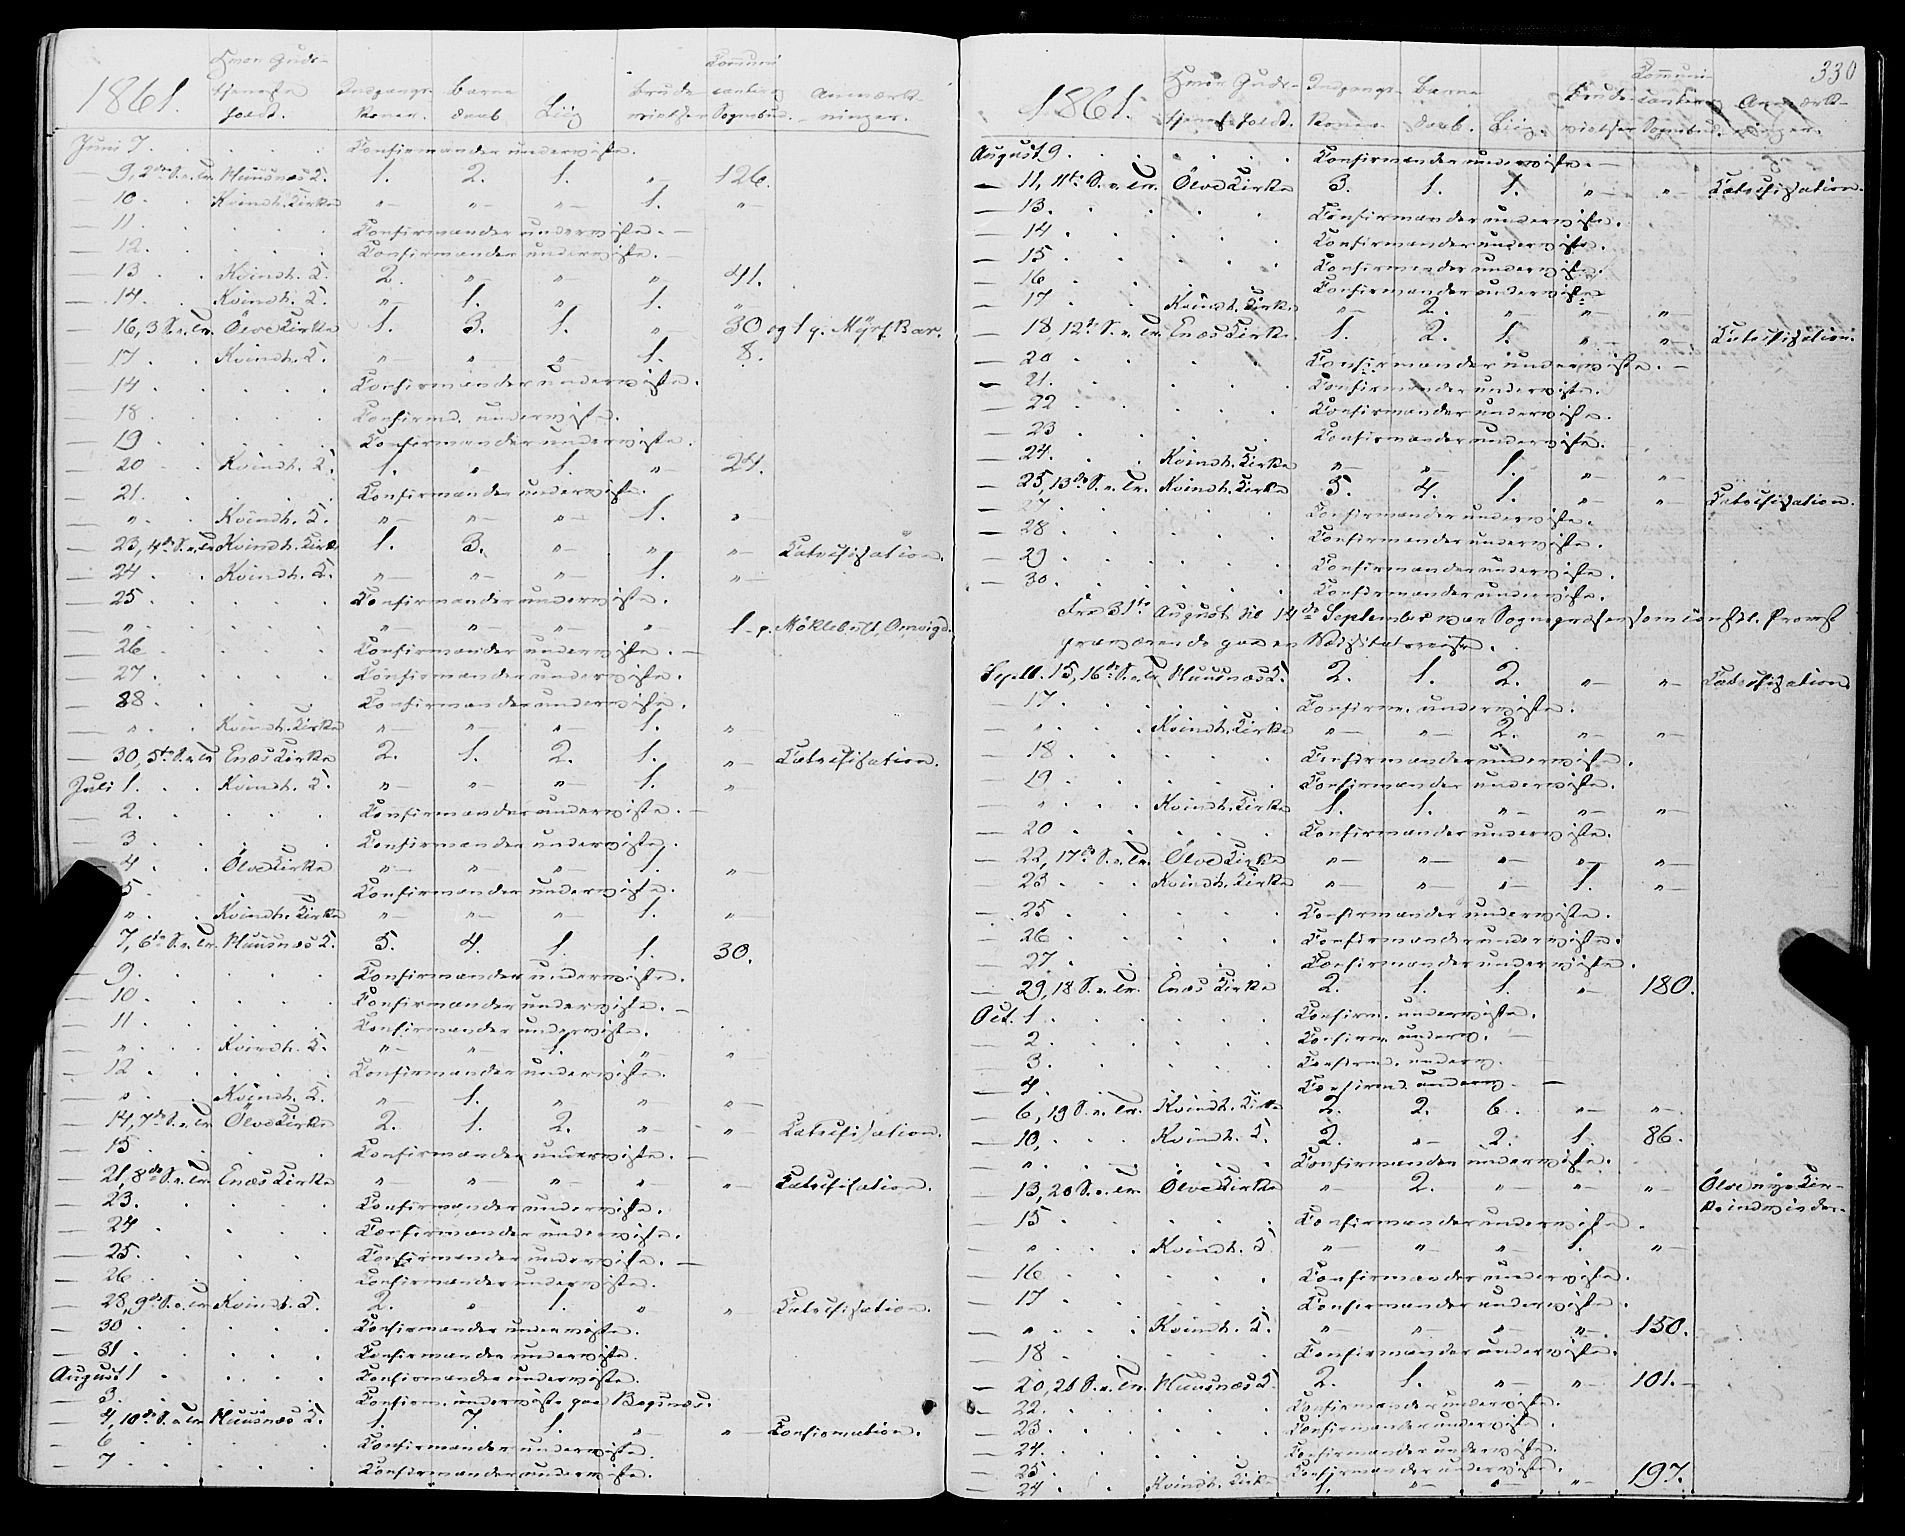 1861. Hvor Guds- tjeneste holdt. Indgangs- Koner. Barne daab Liig Brude- vielser Communi- canter og Sognebud. Anmærk- ninger.
Juni 7. Confirmander underviste.
— 9, 2den S. e. Tr. Huusnæs K. 1. 2. 1. „— 126.
— 10. Kvindh. Kirke „— „— „— 1. „—
— 11. Confirmander underviste. —
— 12. Confirmander underviste. —
— 13. Kvindh. K. 2. „— „— „ 41.
— 14. Kvindh. K. „— 1. „ 1. „—
— 16, 3 S. e. Tr. Ölve Kirke 1. 3. 1. „— 30 og 1 p.
— 17. Kvindh. K. „— „ „— 1. 8.
— 14. Confirmander underviste.
— 18. Confirmd. underviste.
— 19. Confirmander underviste.
— 20. Kvindh. K. 1. „ 1. „— 24.
— 21. Confirmander underviste.
— „. Kvindh. K. „— „— „— 1. „—
— 23, 4de S. e. Tr. Kvindh. Kirke 1. 3. „— „— „— Catechisation.
— 24. Kvindh. K. „— „— „— 1. „—
— 25. Confirmander underviste.
— „. „— „— „— „— 1 p.
— 26. Confirmander underviste. —
— 27. Confirmander underviste.
— 28. Confirmander underviste.
— „. Kvindh. Kirke „— „— „— 1. „—
— 30, 5te S. e. Tr. Enæs Kirke 2. 1. 2. 1. „— Catechisation.
Juli 1. Kvindh. K. „— „— „— 1. „
— 2. Confirmander underviste. —
— 3. Confirmander underviste.
— 4. Ölve Kirke „— „ „— 1. „—
5. Confirmander underviste.
„. Kvindh. Kirke „— „— „— 1. „—
7, 6te S. e. Tr. Huusnæs K. 5. 4. 1. 1. 30.
— 9. Confirmander underviste.
— 10. Confirmander underviste. —
— 11. Confirmander underviste.
— „. Kvindh. K. „— „— 1. „— „—
— 12. Confirmander underviste.
— „. Kvindh. K. „— 1. „— „ „—
— 14, 7de S. e. Tr. Ölve Kirke 2. 1. 2. „— „— Catechisation.
— 15. Confirmander underviste. —
— 21, 8de S. e. Tr. Enæs Kirke „ „ „— „— „— Catechisation.
— 23. Confirmander underviste.
— 24. Confirmander underviste.
— 25. Confirmander underviste. —
— 26. Confirmander underviste.
— 28, 9de S. e. Tr. Kvindh. K. 2. „ 1. „ „ Catechisation.
— 30. Confirmander underviste.
— 31. Confirmander underviste.
August 1. Confirmander underviste.
— 3. Confirm. underviste paa
— 4, 10de S. e. Tr. Huusnæs K. 1. 7. 1. „— „— Confirmation.
— 6. Confirmander underviste.
— 7. Confirmander underviste.
330
1861. Hvor Guds- tjeneste holdt. Indgangs- Koner Barne- daab. Liig. Brude- vielser Communi- canter Sognebud. Anmærk- ninger.
August 9. Confirmander underviste. —
— 11, 11te S. e. Tr. Ölve Kirke 3. 1. 1. „— „— Catechisation.
— 13. Confirmander underviste.
— 14. Confirmander underviste.
— 15. Confirmander underviste.
— 16. Confirmander underviste.
— 17. Kvindh. Kirke „— 2. „ „— „
— 18, 12te S. e. Tr. Enæs Kirke. 1. 2. 1. „— „— Catechisation.
— 20. Confirmander underviste. —
— 21. Confirmander underviste.
— 22. Confirmander underviste.
— 23. Confirmander underviste.
— 24. Kvindh. Kirke „— „— 1. „— „—
— 25, 13de S. e. Tr. Kvindh. Kirke 5. 4. 1. „— „— Catechisation.
— 27. Confirmander underviste.
— 28. Confirmander underviste.
— 29. Confirmander underviste.
— 30. Confirmander underviste.
Fra 31te August til 14de September var Sognepræsten som constit. Provst
fraværende paa en Visitatsreise.
Septb. 15, 16de S. e. Tr. Huusnæs K. 2. 1. 2. „— „— Catechisation
— 17. Confirm. underviste.
— „. Kvindh. Kirke „— „— 2. „— „—
— 18. Confirmander underviste.
— 19. Confirmander underviste.
— „. Kvindh. Kirke 1. 1. „— „— „—
— 20. Confirmander underviste.
— 22, 17de S. e. Tr. Ölve Kirke „— „— „— „— „—
— 23. Kvindh. Kirke „— „— „— 1. „—
— 25. Confirmander underviste.
— 26. Confirmander underviste.
— 27. Confirmander underviste.
— 29, 18 S. e. Tr. Enæs Kirke 2. 1. 1. „— 180.
Oct. 1. Confirm. underviste.
— 2. Confirm. underv. —
— 3. Confirmd. underv. —
— 4. Confirmd. underv. —
— 6, 19 S. e. Tr. Kvindh. Kirke 2. 2. 6. „— „—
— 10, Kvindh. K. 2. „— 2. 1. 86.
— „. Confirmander underviste.
— 13, 20 S. e. Tr. Ölve Kirke „— 2. „— „— „— Ölve nye Kir-
ke indvies der.
— 15. Confirmander underviste.
— „. Kvindh. K. „— „— „— 1. „—
— 16. Confirmander underviste.
— 17. Confirmander underviste.
— „. Kvindh. K. „— „— „— „— 150.
— 18. Confirmander underviste.
— 20, 21 S. e. Tr. Huusnæs K. 2. 1. „— „— 101. —
— 22. Confirmander underviste.
— 23. Confirmander underviste.
— 24. Confirmander underviste.
— 25. Confirmander underviste.
— 24 Kvindh. Kirke 1. „— „— „— 197.